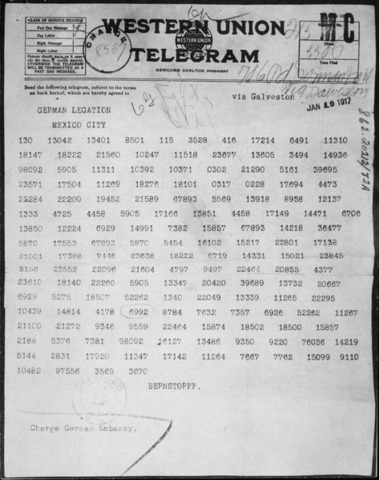 CLASS OF SERVICE DESIRED
Fast Day Message
Day Letter
Night Message
Night Letter
WESTERN UNION
WESTERN UNION
TELEGRAM
NEWCOMB CARLTON, PRESIDENT
CHARGE
Time Filed
Send the following telegram, subject to the terms
on back hereof, which are hereby agreed to
via Galveston
JAN 19 1917
GERMAN LEGATION
MEXICO CITY
130 13042 13401 8501 115 3528 416 17214 6491 11310
18147 18222 21560 10247 11518 23677 13605 3494 14936
98092 5905 11311 10392 10371 0302 21290 5161 39695
23571 17504 11269 18276 18101 0317 0228 17694 4473
22284 22200 19452 21589 67893 5569 13918 8958 12137
1333 4725 4458 5905 17166 13851 4458 17149 14471 6706
13850 12224 6929 14991 7382 15857 67893 14218 36477
5870 17553 67893 5870 5454 16102 15217 22801 17138
21001 17388 7446 23638 18222 6719 14331 15021 23845
3156 23552 22096 21604 4797 9497 22464 20855 4377
23610 18140 22260 5905 13347 20420 39689 13732 20667
6929 5275 18507 52262 1340 22049 13339 11265 22295
10439 14814 4178 6992 8784 7632 7357 6926 52262 11267
21100 21272 9346 9559 22464 15874 18502 18500 15857
2188 5376 7381 98092 16127 13486 9350 9220 76036 14219
5144 2831 17920 11347 17142 11264 7667 7762 15099 9110
10482 97556 3569 3670
BERNSTORFF.
Charge German Embassy.